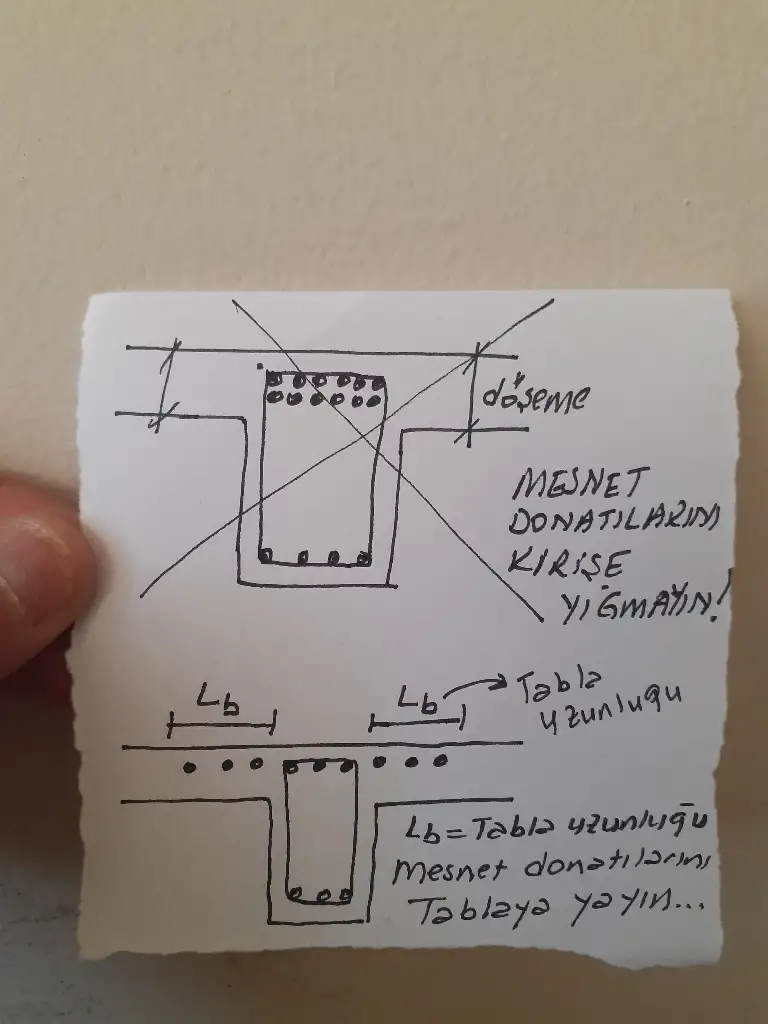 döşeme
MESNET
DONATILARINI
KİRİŞE
YIĞMAYIN!
Lb
Lb
Tabla
uzunluğu
Lb = Tabla uzunluğu
Mesnet donatılarını
Tablaya yayın...